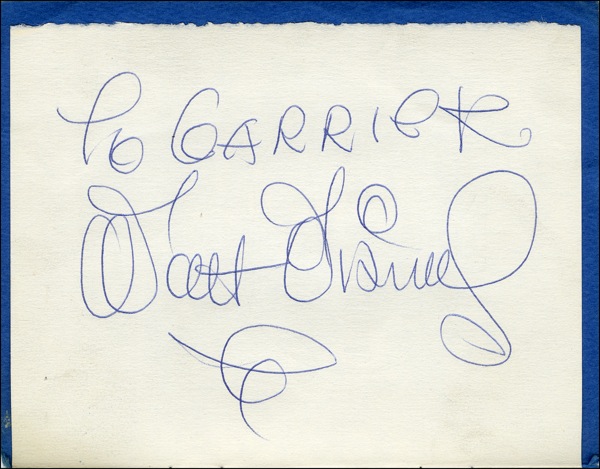 To GARRICK
Walt Disney